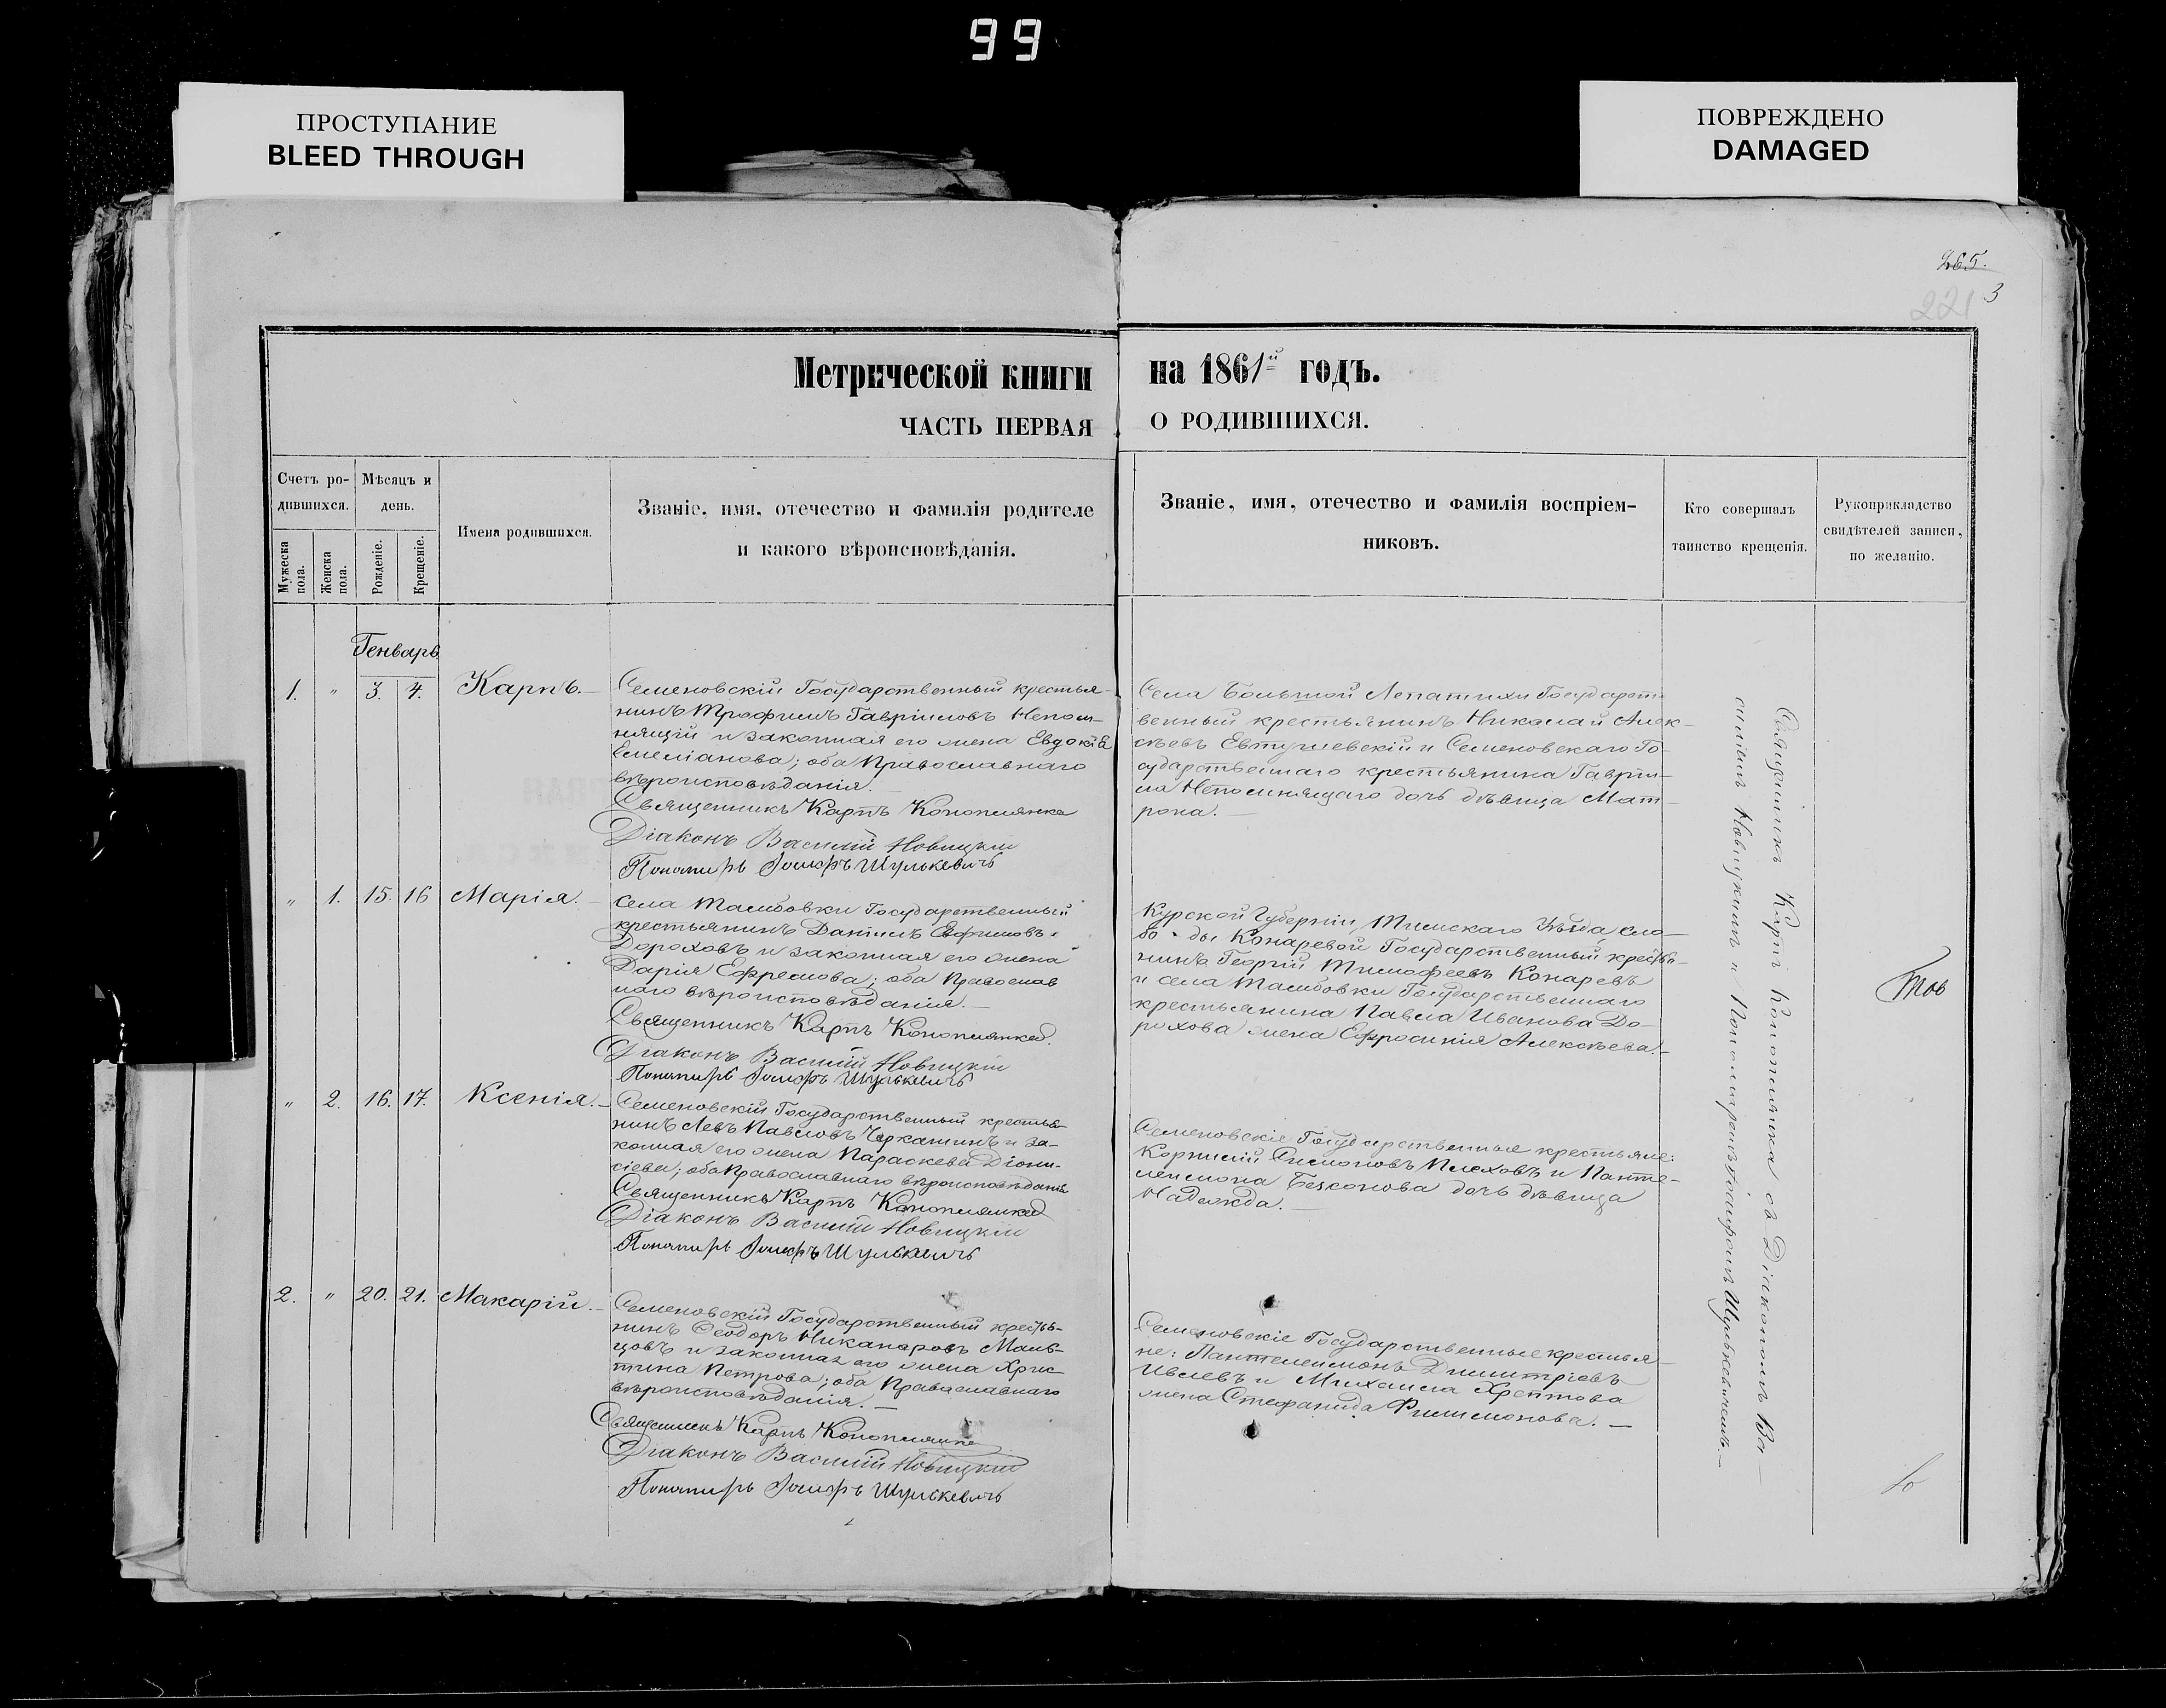 99
ПРОСТУПАНИЕ
BLEED THROUGH
ПОВРЕЖДЕНО
DAMAGED
265.
221 3
Метрической книги
на 1861й годъ.
ЧАСТЬ ПЕРВАЯ
О РОДИВШИХСЯ.
Счетъ ро-
дившихся.
Мужеска
пола.
Женска
пола.
Мѣсяцъ и
день.
Рожденіе.
Крещеніе.
Имена родившихся.
Званіе, имя, отечество и фамилія родителе
и какого вѣроисповѣданія.
Званіе, имя, отечество и фамилія воспріем-
никовъ.
Кто совершалъ
таинство крещенія.
Рукоприкладство
свидѣтелей записи,
по желанію.
Генварь
1. " 3. 4. Карпъ.
Семеновскій Государственный крестья-
нинъ Трофимъ Гавріиловъ Непом-
нящій и законная его жена Евдокія
Емеліанова; оба Православнаго
вѣроисповѣданія.
Священникъ Карпъ Коноплянка
Діаконъ Василій Новицкій
Пономарь Іосифъ Шулькевичъ
Села Большой Лепатихи Государст-
венный крестьянинъ Николай Алек-
сѣевъ Евтушевскій и Семеновскаго Го-
сударственнаго крестьянина Гаврiи-
ла Непомнящаго дочь дѣвица Мат-
рона.
" 1. 15. 16 Марія.
Села Тамбовки Государственный
крестьянинъ Даніилъ Ефимовъ
Дороховъ и законная его жена
Дарія Ефремова; оба Православ
наго вѣроисповѣданія.
Священникъ Карпъ Конопляnка
Діаконъ Василій Новицкій
Пономарь Іосифъ Шулькевичъ
Курской Губерніи, Тимскаго Уѣзда, сло-
бо-ды Конаревой Государственный крестья-
нинъ Георгій Тимофеевъ Конаревъ
и села Тамбовки Государственнаго
крестьянина Павла Иванова До-
рохова жена Ефросинія Алексѣева.
" 2. 16. 17. Ксенія.
Семеновскій Государственный крестья-
нинъ Левъ Павловъ Черкашинъ и за-
конная его жена Параскева Діони-
сіева; оба Православнаго вѣроисповѣданія
Священникъ Карпъ Конопляnка
Діаконъ Василій Новицкій
Пономарь Іосифъ Шулькевичъ
Семеновскіе Государственные крестьяне:
Корнилій Симоновъ Плеховъ и Панте-
леимона Безконова дочь дѣвица
Надежда.
2. " 20. 21. Макарій.
Семеновскій Государственный крестья-
нинъ Ѳеодоръ Никаноровъ
и законная его жена Хрис-
тина Петрова; оба Православнаго
вѣроисповѣданія.
Священникъ Карпъ Конопляnка
Діаконъ Василій Новицкій
Пономарь Іосифъ Шулькевичъ
Семеновскіе Государственные крестья-
не: Пантелеимонъ Димитріевъ
Ивлевъ и Михаила Хрептова
жена Стефанида Филимонова.
Священникъ Карпъ Конопляnка съ Діакономъ Ва-
силіемъ Новицкимъ и Пономаремъ Іосифомъ Шулькевичемъ.